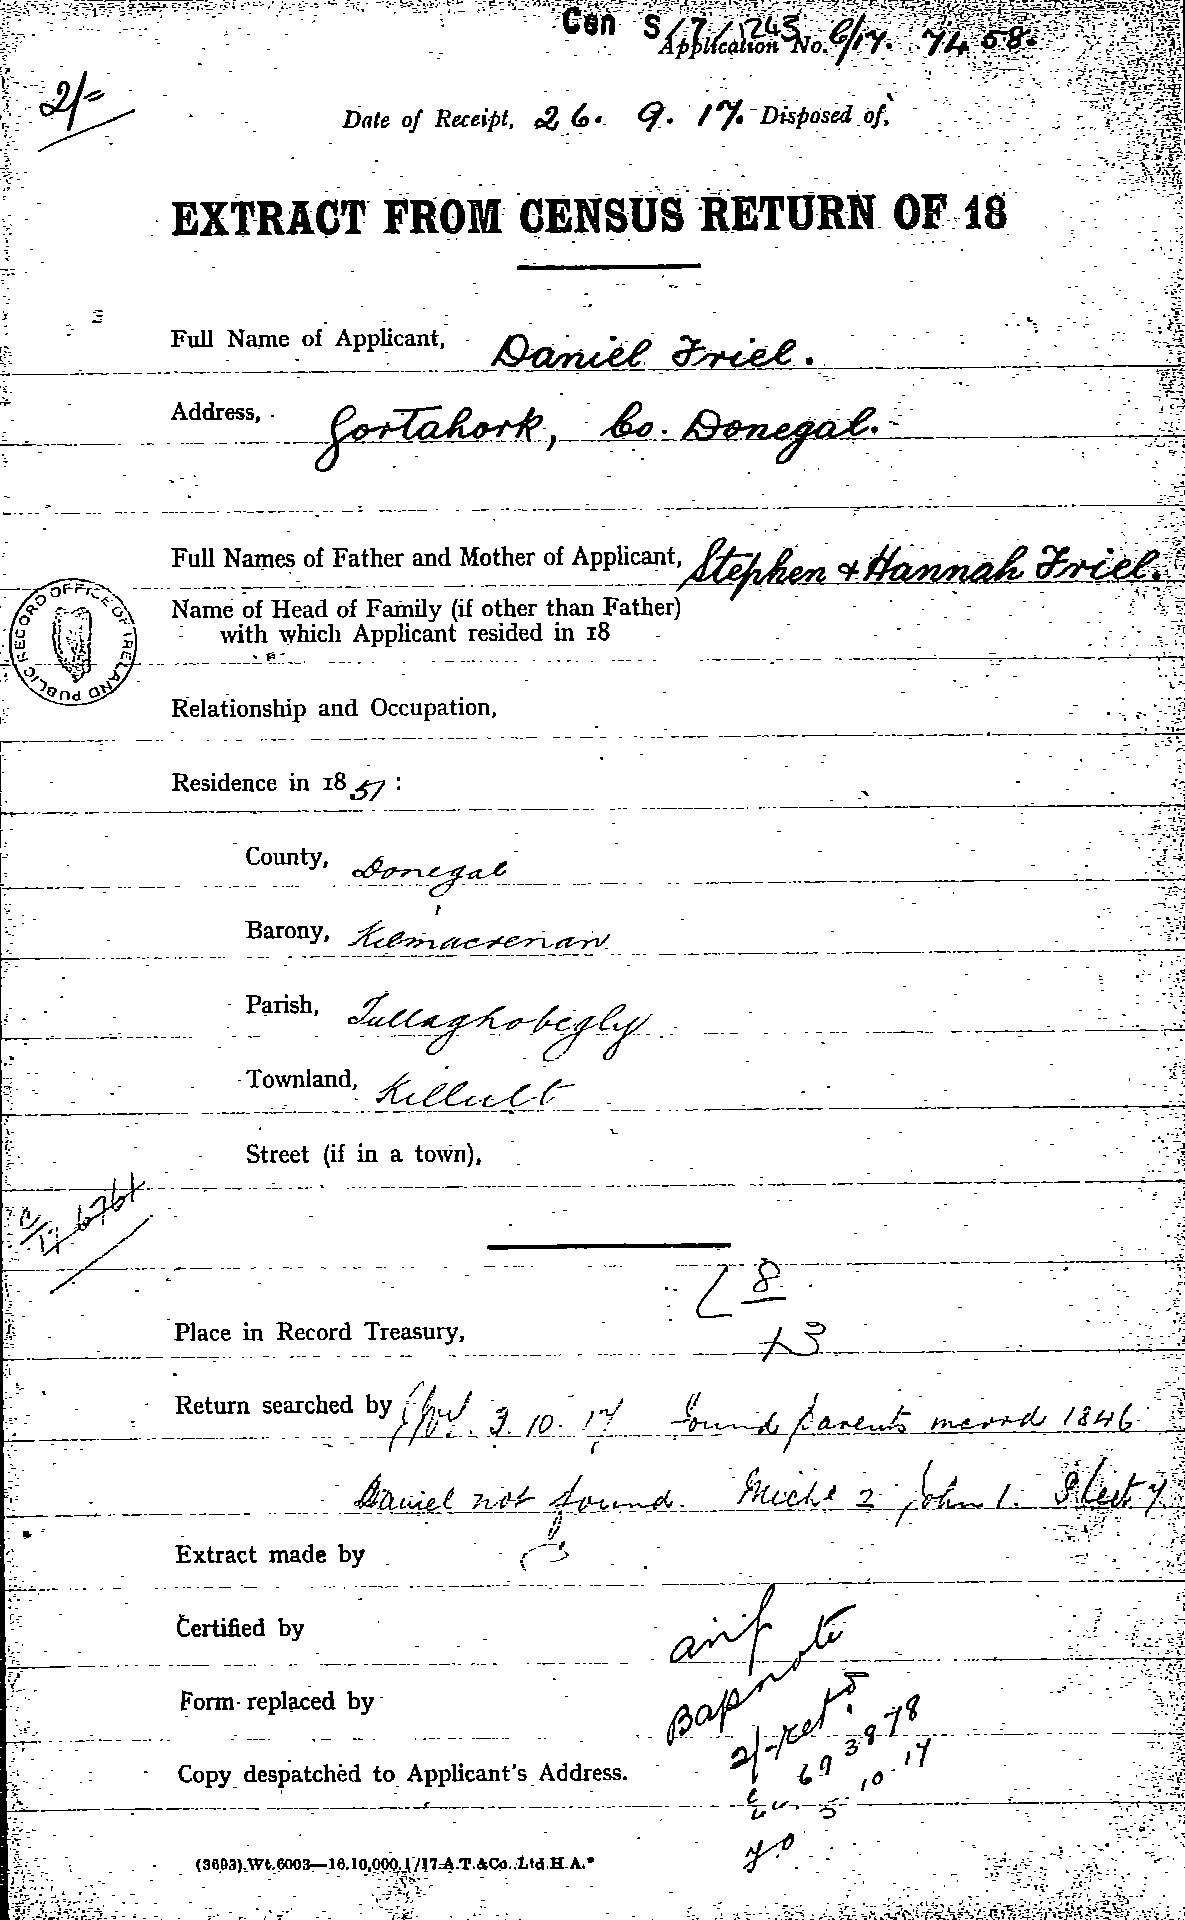 Cen S/7/1243
Application No. C/17. 7458.
2/=
Date of Receipt, 26. 9. 17. Disposed of,
EXTRACT FROM CENSUS RETURN OF 18
Full Name of Applicant, Daniel Friel.
Address, Gortahork, Co. Donegal.
Full Names of Father and Mother of Applicant, Stephen & Hannah Friel.
PUBLIC RECORD OFFICE OF IRELAND
Name of Head of Family (if other than Father)
with which Applicant resided in 18
Relationship and Occupation,
Residence in 1851:
County, Donegal
Barony, Kilmacrenan
Parish, Tullaghobegly
Townland, Killult
Street (if in a town),
C/17 6761
8
13
Place in Record Treasury,
Return searched by 3. 10. 17 Found parents marrd 1846
Daniel not found. Michl 2 John 1.
Extract made by
Certified by
Form replaced by
2/- retd
693878
Copy despatched to Applicant's Address.
5 10 17
(3693).Wt.6003—16.10,000.1/17.A.T.&Co.,Ltd.H.A.